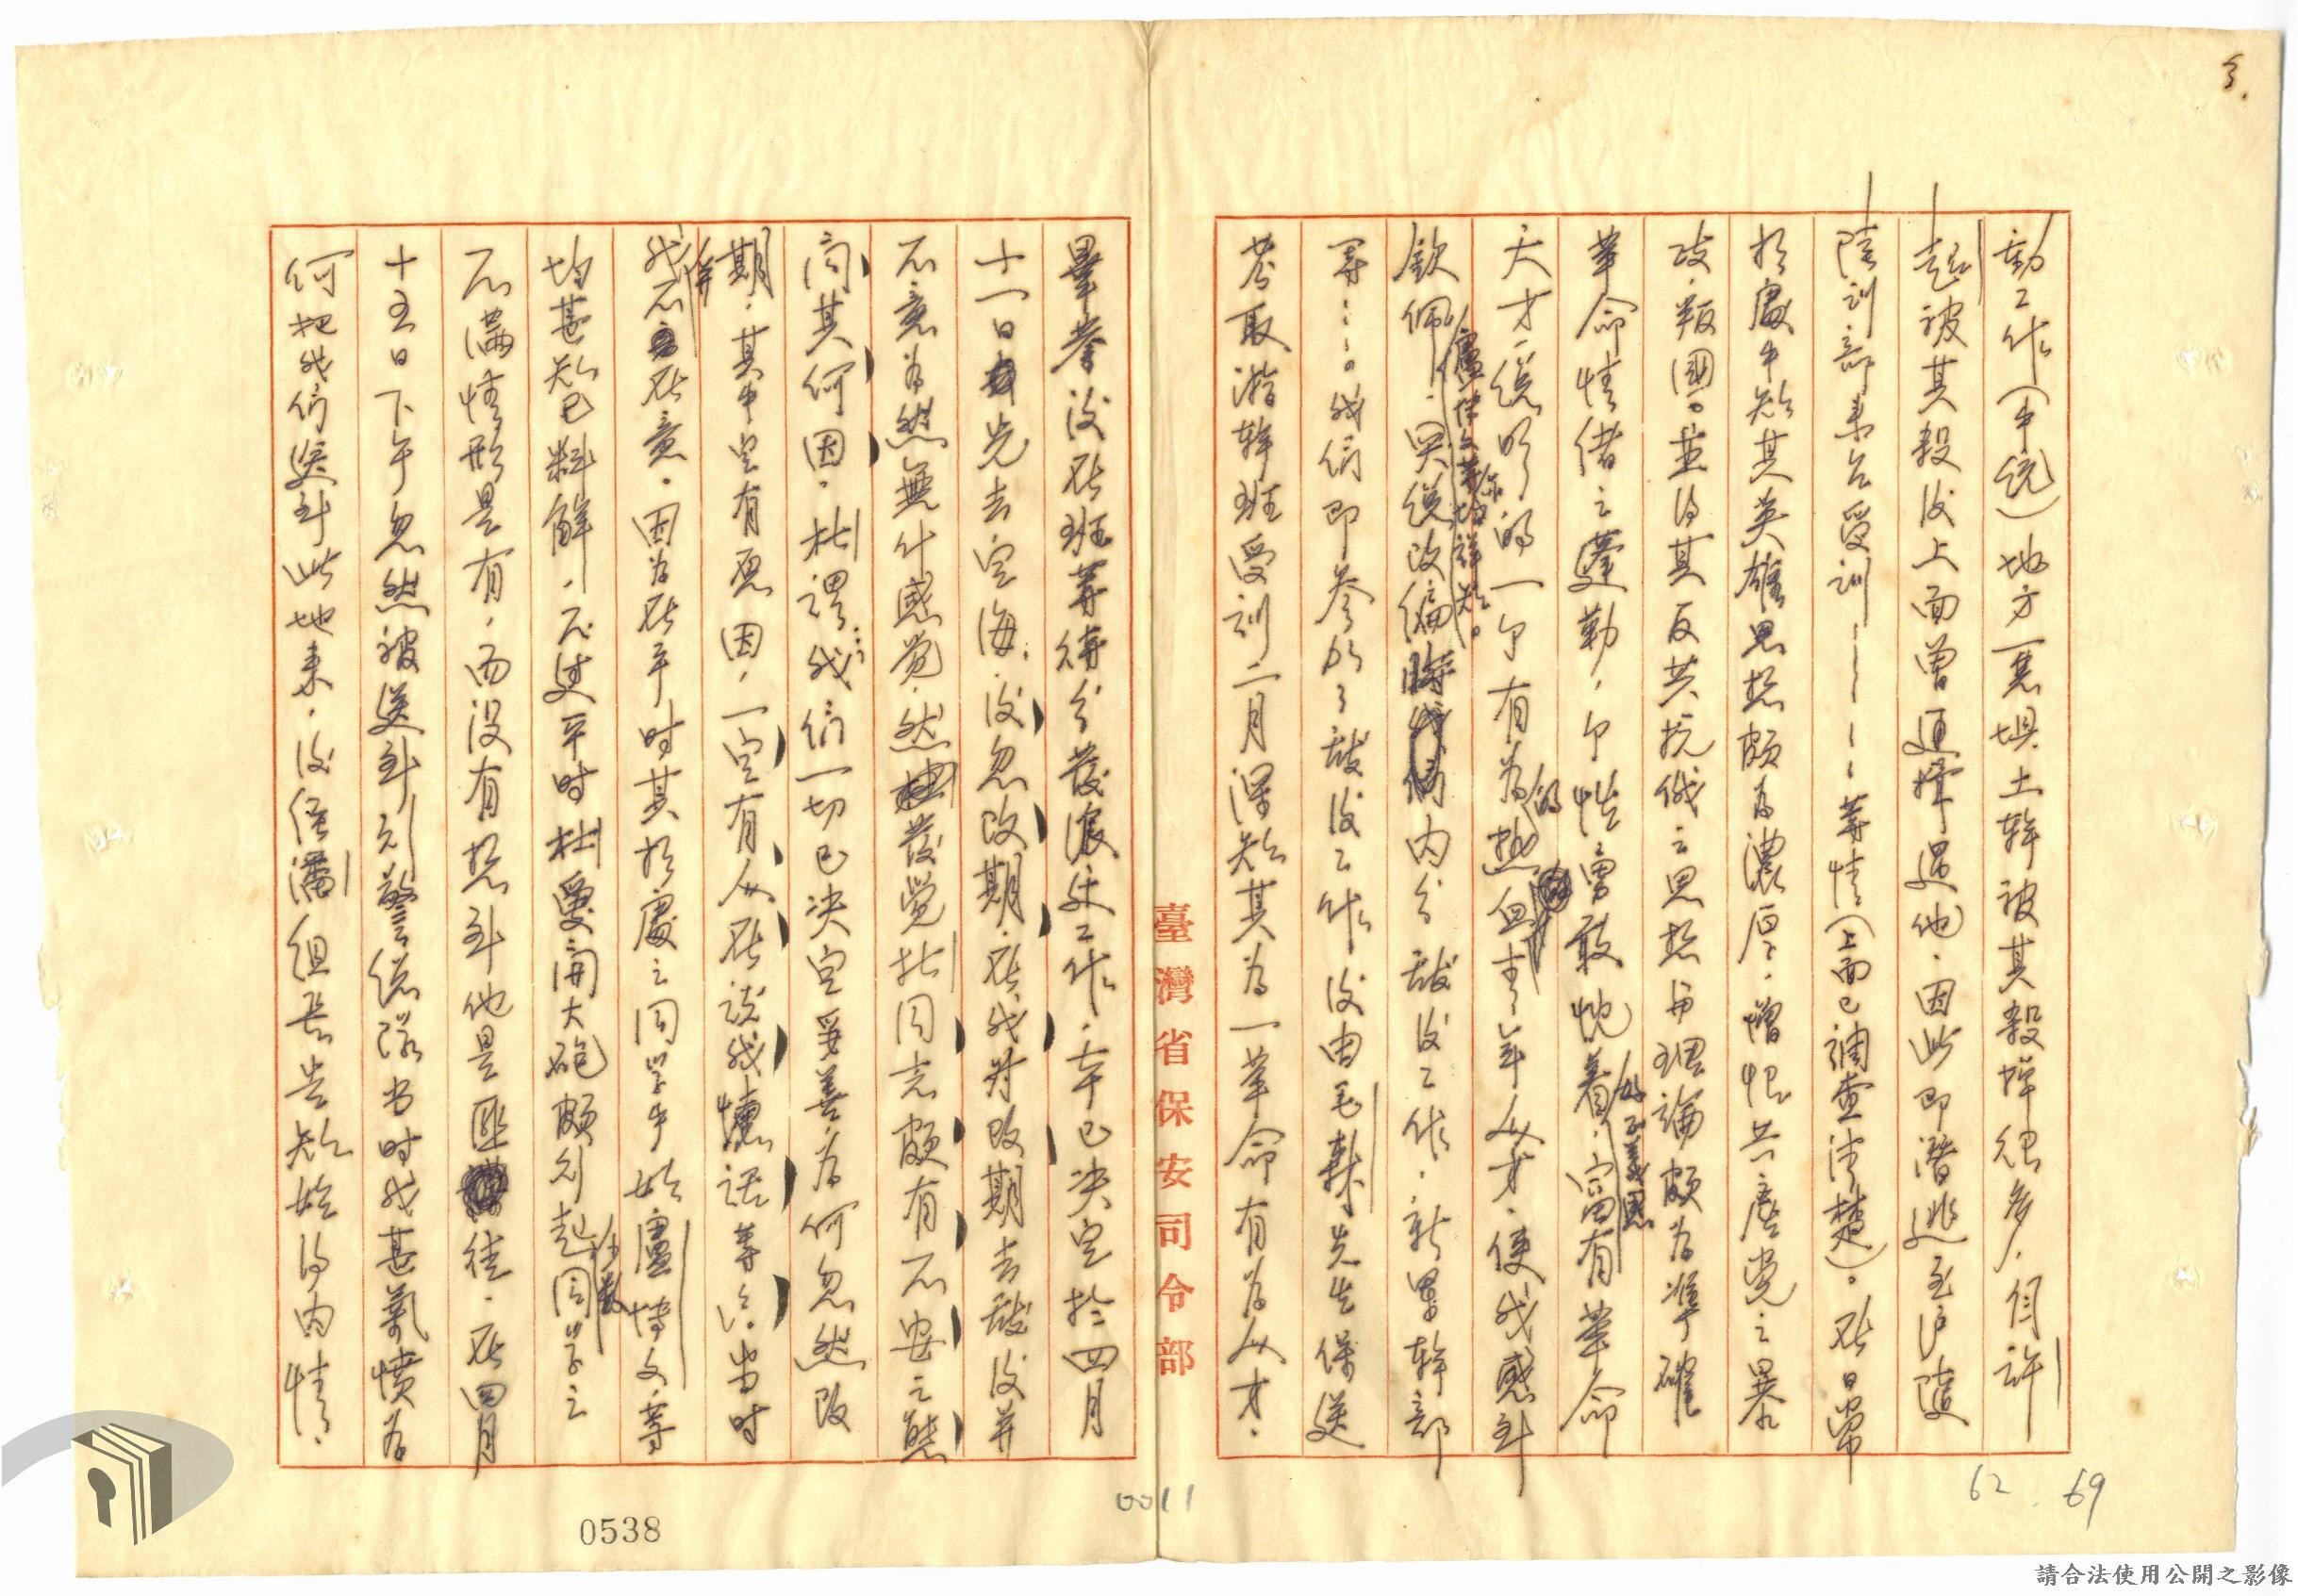 3.
動工作(中統)地方一惡壩土幹被其殺掉很多,但許
趙被其殺後上面曾通擇過他,因此即潛逃至沪隨
陸訓部來台受訓……等情(上面已調查清楚)。在日常
相處中知其英雄思想頗為濃厚,憎恨共產党之暴
政,叛國。並得其反共抗俄之思想与理論頗為準確
革命情緒之蓬勃,个性之勇敢忱着,富有革命
好不義思
天才,總明的一个有為的熱血青年人才,使我感到
欽佩,
盧悌文等亦均詳知。
與從改編內分敵後工作,新軍幹部
等……。我們即參加了敵後工作後由毛森先生保送
考取游幹班受訓二月深知其為一革命有為人才。
臺灣省保安司令部
畢業後在班等待分發派赴工作,本已決定於四月
十一日先去定海,後忽改期,在我对改期去敵後并
不意為然無什感覺,然發覺杜同志頗有不安之態
問其何因,杜謂:我們一切已決定妥善為何忽然改
期,其中定有原因,一定有人在說我壞話等語。當時
我并不在意。因為在平時其相處之同学中如盧悌文等
均甚知已料解,不過平時杜愛開大砲頗引起少数同学之
不滿情形是有,而沒有想到他是匪徒,在四月
十五日下午忽然被送到刑警總隊当时我甚氣憤為
何把我們送到此地來,後經潘組長告知始得內情。
0538
0011
62
69
請合法使用公開之影像